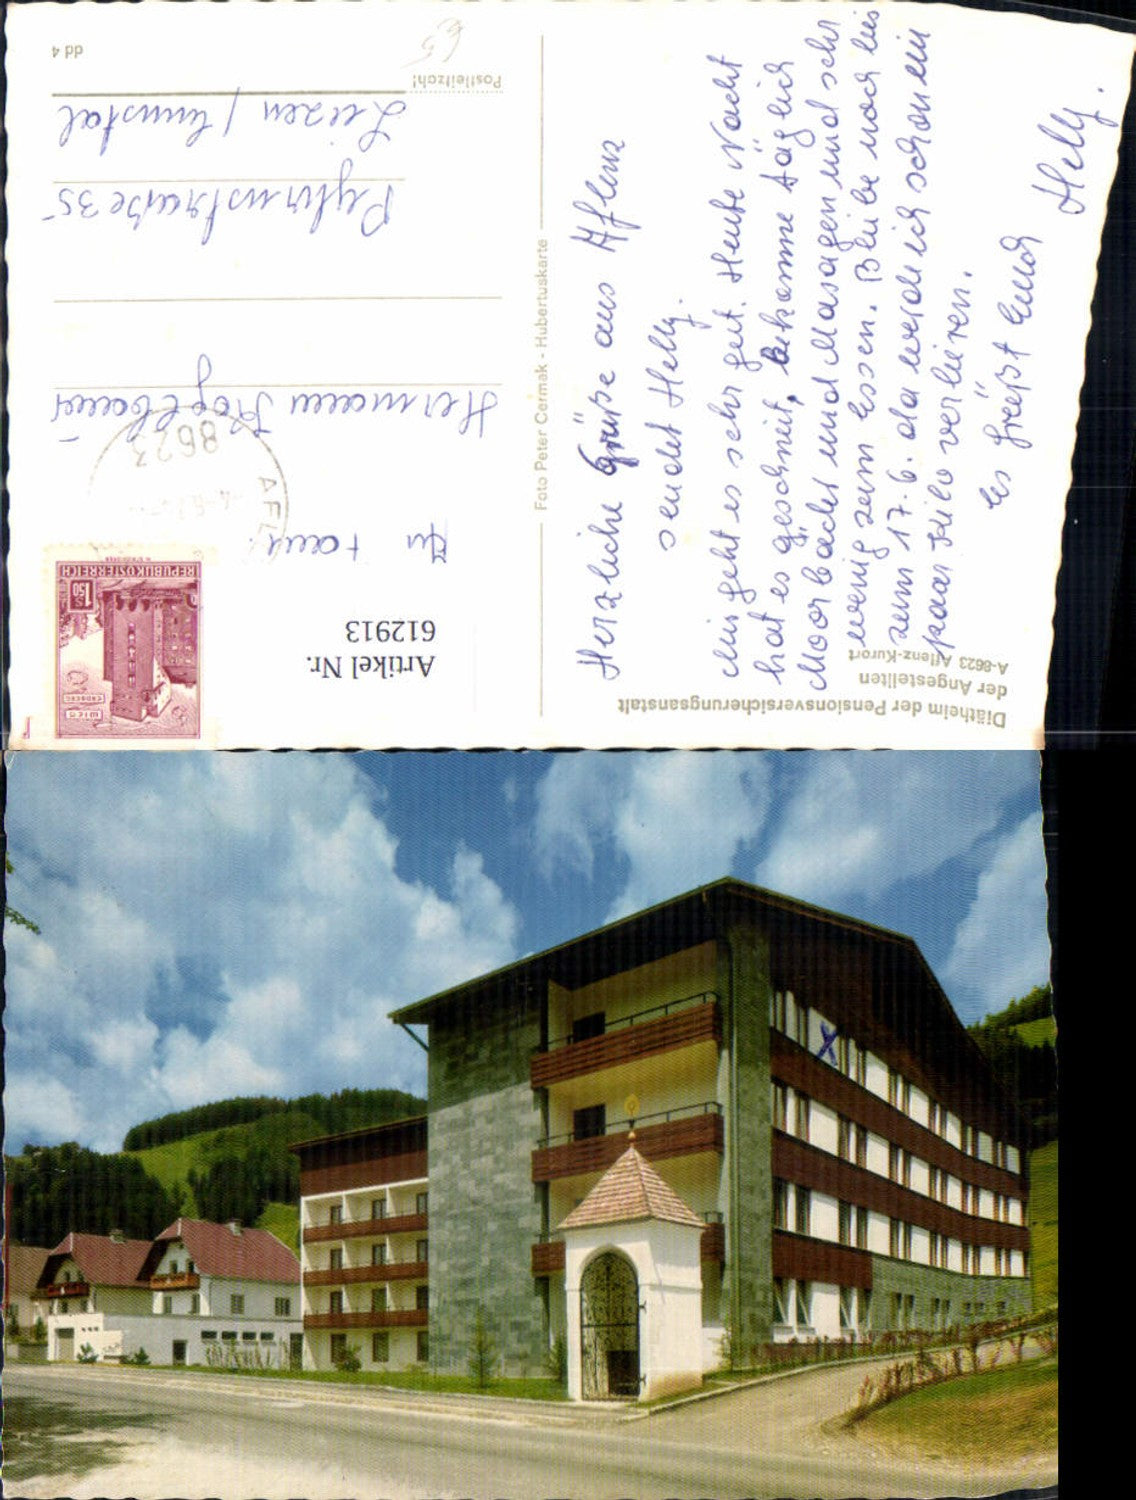 Diätheim der Pensionsversicherungsanstalt
der Angestellten
A-8623 Aflenz-Kurort
Herzliche Grüße aus Aflenz
sendet Helly.
Mir geht es sehr gut. Heute Nacht
hat es geschneit, bekomme täglich
Moorbäder und Masagen und sehr
wenig zum Essen. Bleibe noch bis
zum 17. 6. da werde ich schon ein
paar Kilo verlieren.
Es Grüßt Euch
Helly.
Foto Peter Cermak - Hubertuskarte
Artikel Nr.
612913
REPUBLIK ÖSTERREICH
S 1.50
WIEN
ERDBERG
8623
AFL
Hermann
Pyhrnstraße 35
Liezen / Ennstal
Postleitzahl
dd 4
65
X